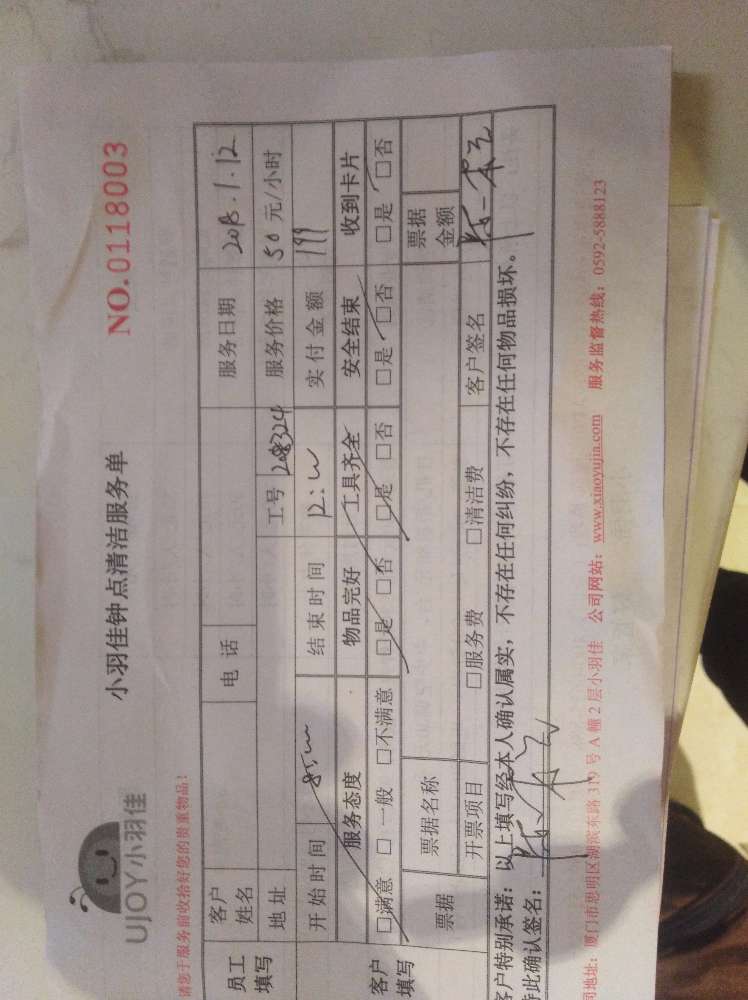 UJOY小羽佳
小羽佳钟点清洁服务单
NO.0118003
请您于服务前收拾好您的贵重物品!
员工填写
客户姓名
电话
服务日期
2018.1.12
地址
工号
208324
服务价格
50元/小时
开始时间
结束时间
12:00
实付金额
199
客户填写
服务态度
物品完好
工具齐全
安全结束
收到卡片
□满意 □一般 □不满意
□是 □否
□是 □否
□是 □否
□是 □否
票据
票据名称
票据金额
开票项目
□服务费
□清洁费
客户签名
客户特别承诺:以上填写经本人确认属实,不存在任何纠纷,不存在任何物品损坏。
特此确认签名:
司地址:厦门市思明区湖滨东路319号A幢2层小羽佳 公司网站:www.xiaoyujia.com 服务监督热线:0592-5888123